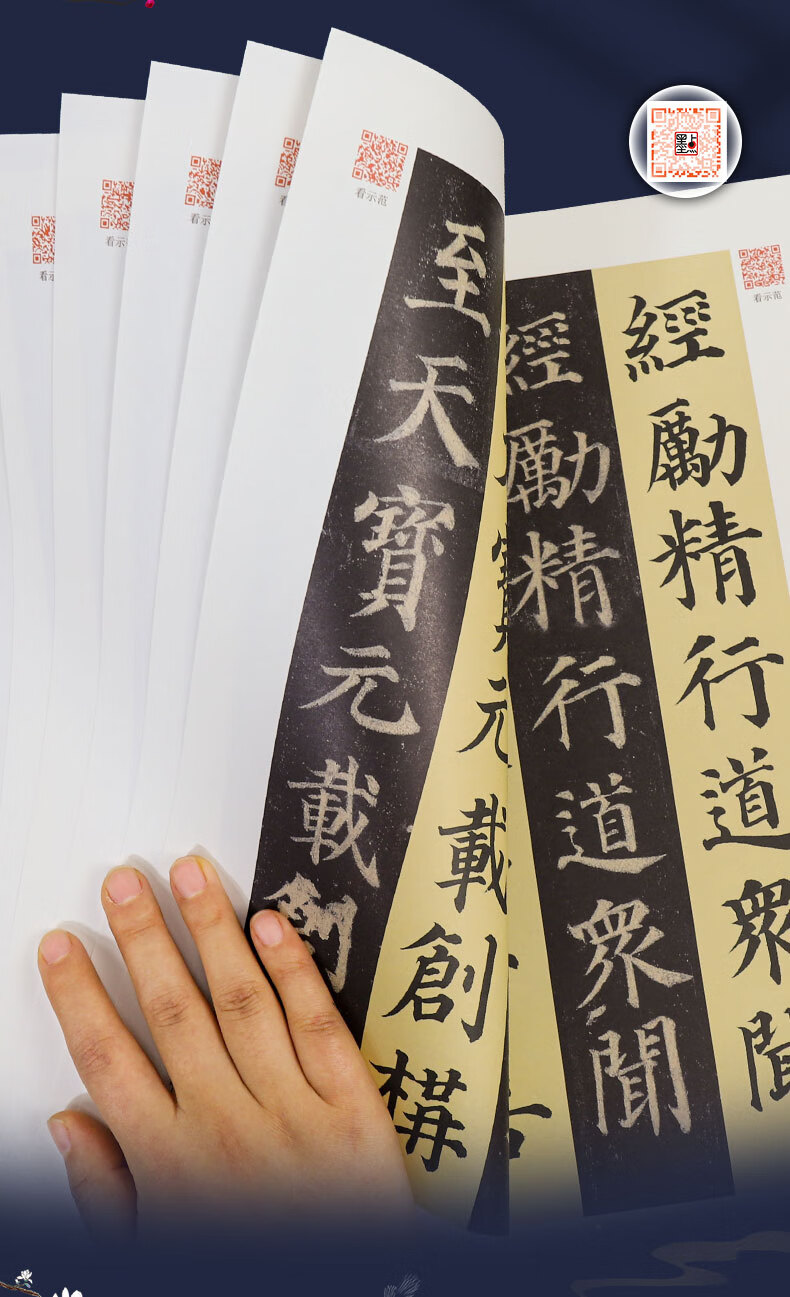 墨点
看示范
看示范
看示
看示
看示
看
至天寶元載創
元載創構
經勵精行道衆聞
經勵精行道衆聞